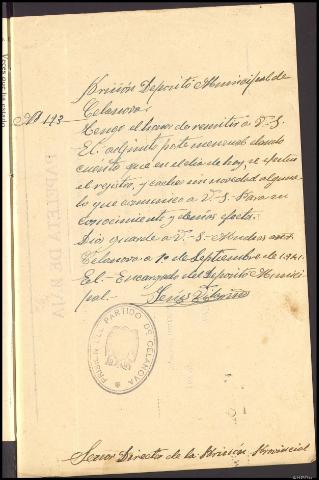 Prisión Depósito Municipal de
Celanova.
Nº 113
Tengo el honor de remitir a V.-S.
El adjunto parte mensual dando
cuenta que en el dia de hoy, se
el registro, y cacheo sin novedad alguna
lo que comunico a V.-S.- Para su
conocimiento y demas efectos.
Dios guarde a V.-S.- Muchos
Celanova a 1º de Septiembre de 1.941.
El.- Encargado del Depósito Munici
pal.-
PRISION DEL PARTIDO DE CELANOVA
Señor Director de la Prisión Provincial